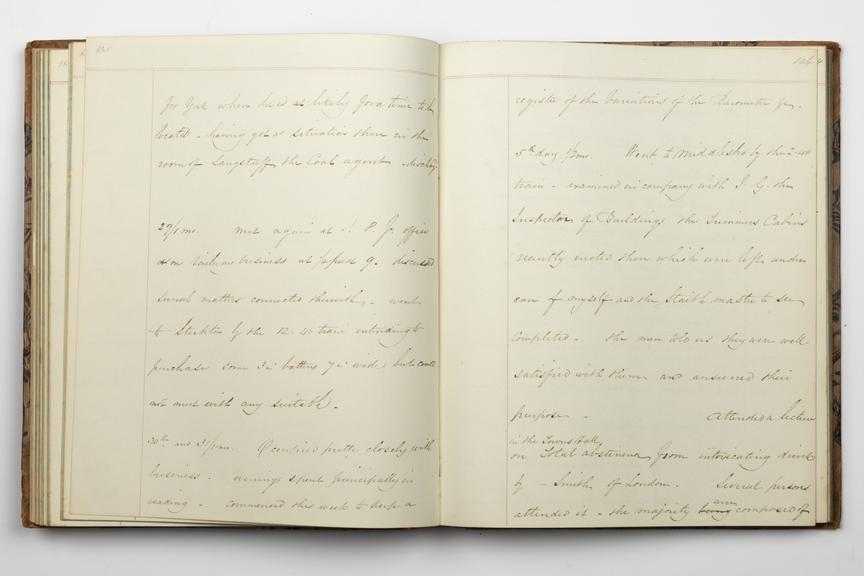 for York when he is at likely for a time to be
located - having got a situation there in the
room of Langstaff the Coal agent
29/1 mo. met again at J. P. Js office
on railway business at ½ past 9. discussed
several matters connected therewith - went
to Stockton by the 12-40 train intending to
purchase some 3 in battens 7 in wide but could
not meet with any suitable -
30th and 31/1 mo. Occupied pretty closely with
business - evenings spent principally in
reading - commenced this week to keep a
126
register of the Variations of the Barometer &c.
5th day 1/2mo. Went to Middlesbro by the 2-40
train - examined in company with J. G. the
Inspector of Buildings the Trimmers Cabins
recently erected there which are left under
care of myself and the Staith master to see
completed - the men told us they were well
satisfied with them and answered their
purpose - Attended a lecture
in the Towns Hall
on Total abstinence from intoxicating drinks
by - Smith of London. Several persons
attended it - the majority being composed of